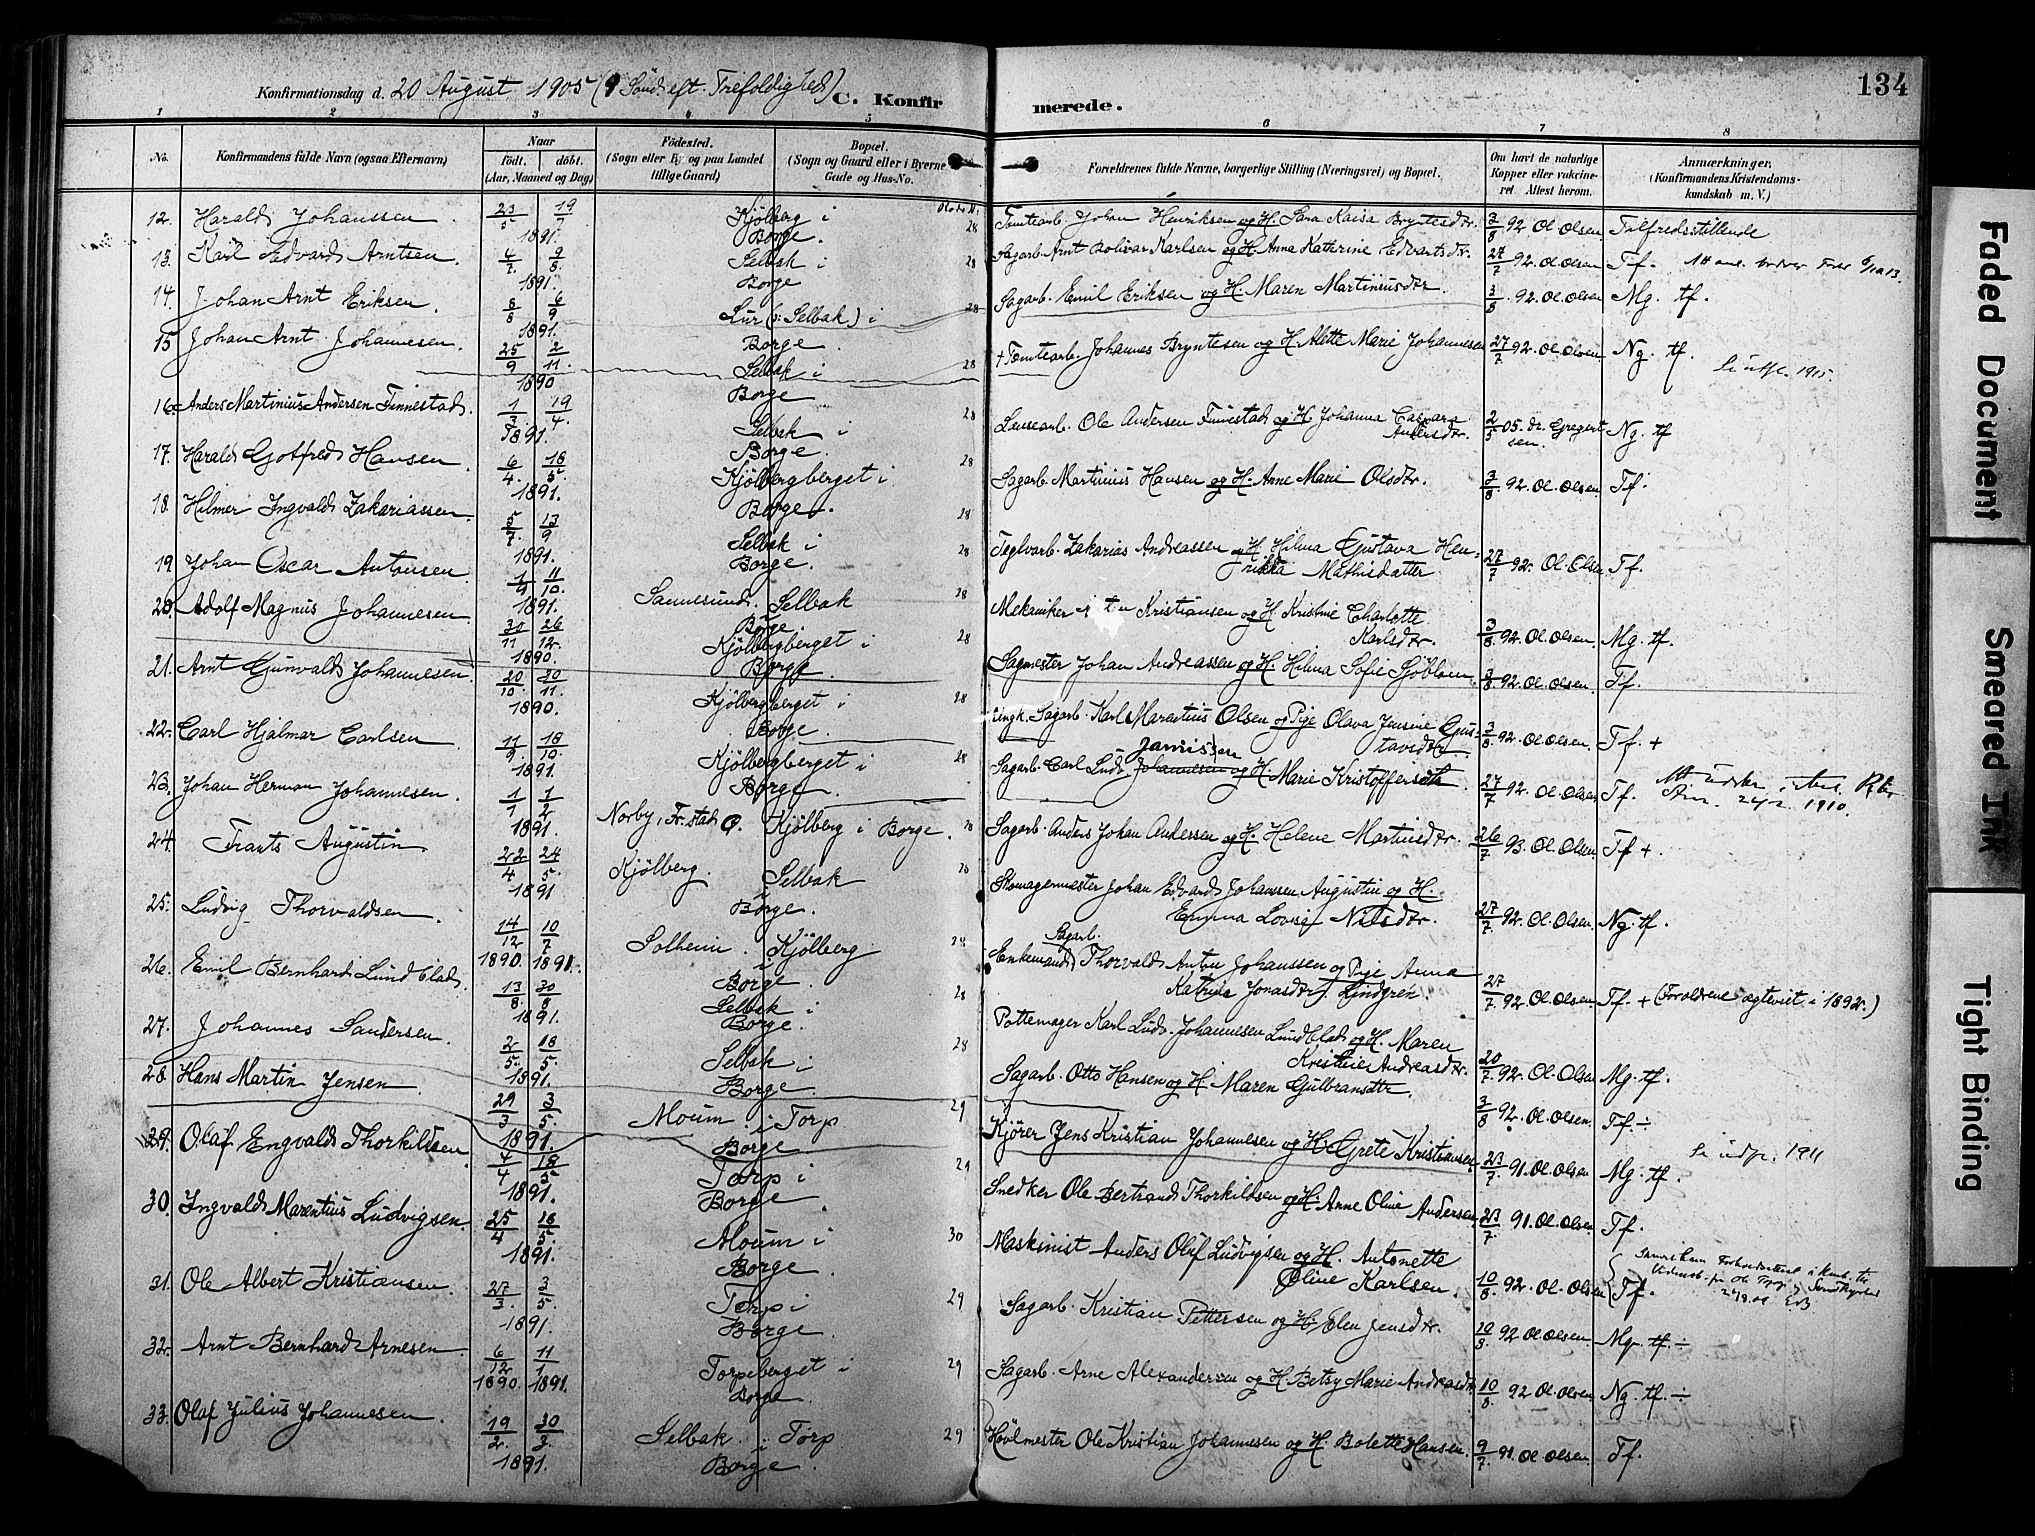 134
Konfirmationsdag d. 20 August 1905 (9 Sönd. eft. Trefoldighed) C. Konfirmerede.
1 2 3 4 5 6 7 8
No. Konfirmandens fulde Navn (ogsaa Efternavn) Naar Födt. döbt. (Aar, Maaned og Dag) Födested. (Sogn eller By og paa Landet tillige Gaard) Bopæl. (Sogn og Gaard eller i Byerne Gade og Hus-No. Forældrenes fulde Navne, borgerlige Stilling (Næringsvei) og Bopæl. Om havt de naturlige Kopper eller vakcineret Attest herom. Anmærkninger. (Konfirmandens Kristendomskundskab m. V.)
12. Harald Johanssen 23/5 19/7 1891. Kjölberg i Borge. 28 Tomtearb. Johan Henriksen og H. Sara Kaisa Bryntesdtr. 3/8 92 Ol. Olsen. Tilfredsstillende
13. Karl Edvard Arntsen. 4/7. 9/8. 1891. Selbak i Borge 28 Sagarb. Arnt Bolivar Karlsen og H. Anna Katerine Edvartsdtr. 27/7 92. Ol. Olsen Tf.
14. Johan Arnt Eriksen. 8/8 6/9 1891. Lur (: Selbak) i Borge. 28 Sagarb. Emil Eriksen og H. Maren Martiniusdtr. 3/8. 92. Ol. Olsen Mg. tf.
15 Johan Arnt Johannesen. 25/9 2/11. 1890 Selbak i Borge 28 + Tomtearb. Johannes Bryntesen og H. Alette Marie Johannesen 27/7 92. Ol. Olsen Ng. tf. 1915.
16. Anders Martinius Andersen Finnestad. 1/3. 19/4. 1891. Selbak i Borge. 28 Lensearb. Ole Andersen Finnestad og H. Johanna Caspara Andersdtr. 2/5 05. dr. Gregertsen. Ng. tf
17. Harald Gotfred Hansen. 6/4. 18/5. 1891. Kjölbergberget i Borge. 28 Sagarb. Martinius Hansen og H. Anne Marie Olsdtr. 3/8 92. Ol. Olsen Tf.
18. Hilmer Ingvald Zakariassen. 5/7. 13/9 1891. Selbak i Borge. 28 Teglvarb. Zakarias Andreassen og H. Hilma Gustava Henrikka Mathisdatter 27/7 92. Ol. Olsen Tf.
19. Johan Oscar Antonsen. 11/10. 1891. Sannesund. Selbak Borge. 28 Mekaniker Kristiansen og H. Kristine Charlotte Karlsdtr. 3/8 92. Ol. Olsen. Mg. tf.
20. Adolf Magnus Johannesen 30/11 26/12. 1890. Kjölbergberget i Borge. 28 Sagmester Johan Andreassen og H. Hilma Sofie Sjöblom. 3/8 92. Ol. Olsen. Tf.
21. Arnt Gunvald Johannesen 20/10. 30/11. 1890. Kjölbergberget i Borge. 28 Ungk. Sagarb. Karl Marentius Olsen og Pige Olava Jensine Gustavsdtr. 3/8 92. Ol. Olsen. Tf. +
22. Carl Hjalmar Carlsen 11/9. 18/10 1891. Kjölbergberget i Borge. 28 Sagarb. Carl Ludv. Johannesen og H. Marie Kristoffersdtr. 27/7 92. Ol. Olsen Tf. 1910.
23. Johan Herman Johannesen. 1/1 1/2 1891. Norby, Fr.stad O. Kjölberg i Borge. 28 Sagarb. Anders Johan Andersen og H. Helene Martinsdtr. 26/7 93. Ol. Olsen. Tf +.
24. Frants Augustin. 22/4 24/5. 1891 Kjölberg. Selbak i Borge. 28 Skomagermester Johan Edvard Johanssen Augustin og H. Emma Lovise Nilsdtr. 27/7 92. Ol. Olsen. Ng. tf.
25. Ludvig Thorvaldsen. 14/12 10/7 1890. 1891. Solheim. Kjölberg i Borge. 28 Enkemand Sagarb. Thorvald Anton Johanssen og Pige Anna Katrine Jonasdtr. Lindgren. 27/7 92. Ol. Olsen Tf. + (Forældrene ægteviet i 1892.)
26. Emil Bernhard Lundblad. 13/8. 30/8 1891. Selbak i Borge. 28 Pottemager Karl Ludv. Johannesen Lundblad og H. Maren Kristine Andreasdtr. 20/7. 92. Ol. Olsen Mg. tf.
27. Johannes Sandersen. 2/5. 18/5. 1891. Selbak i Borge. 28 Sagarb. Otto Hansen og H. Maren Gulbransdtr. 3/8 92. Ol. Olsen. Tf. ÷
28. Hans Martin Jensen 29/3 3/5. 1891. Moum. i Torp Borge 29 Kjører Jens Kristian Johannesen og H. Grete Kristiansen 23/7. 91. Ol. Olsen Mg. tf. 1911
29. Olaf Engvald Thorkildsen 4/4 18/5 1891. Torp i Borge 29 Snedker Ole Bertrand Thorkildsen og H. Anne Oline Andersen. 23/7. 91. Ol. Olsen Tf.
30. Ingvald Marentius Ludvigsen. 25/4 18/5. 1891. Moum i Borge. 30 Maskinist Anders Olaf Ludvigsen og H. Antonette Oline Karlsen. 10/8. 92. Ol. Olsen Tf.
31. Ole Albert Kristiansen. 27/3. 3/5. 1891. Torp i Borge. 29 Sagarb. Kristian Pettersen og H. Elen Jensdtr. 10/8. 92 Ol. Olsen. Mg. tf. ÷
32. Arnt Bernhard Arnesen. 6/12 11/1 1890. 1891. Torpeberget i Borge. 29 Sagarb. Arne Alexandersen og H. Betsy Marie Andreasdtr. 10/8. 92 Ol. Olsen Ng. tf. ÷
33. Olaf Julius Johannesen. 19/2. 30/3. 1891. Selbak. i Torp Borge. 29 Hövlmester Ole Kristian Johannesen og H. Bolette Hansen. 9/7. 91. Ol. Olsen. Tf.
Faded Document
Smeared Ink
Tight Binding